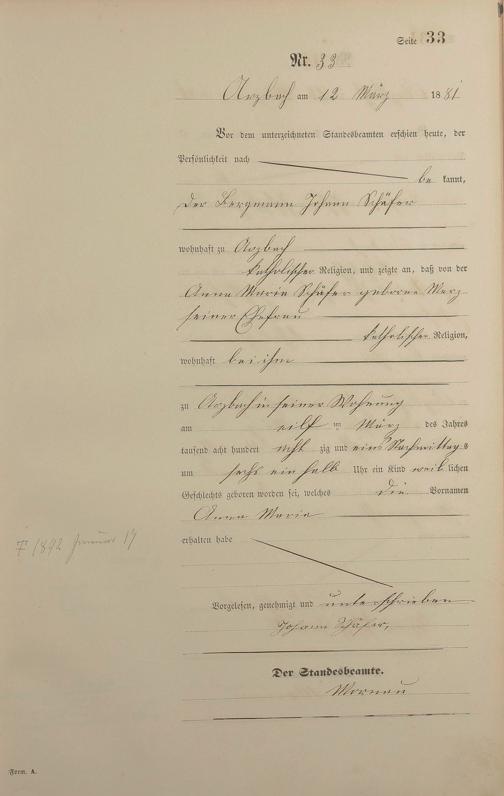 Seite 33
Nr. 33
Arzbach am 12 März 1881
Vor dem unterzeichneten Standesbeamten erschien heute, der
Persönlichkeit nach
be kannt,
der Bergmann Johann Schäfer
wohnhaft zu Arzbach
katholischer Religion, und zeigte an, daß von der
Anna Maria Schäfer geborene Merz
seiner Ehefrau
katholischer Religion,
wohnhaft bei ihm
zu Arzbach in seiner Wohnung
am eilf ten März des Jahres
tausend acht hundert acht zig und eins Nachmittags
um sechs einhalb Uhr ein Kind weib lichen
Geschlechts geboren worden sei, welches die Vornamen
Anna Maria
erhalten habe
† 1892 Januar 19
Vorgelesen, genehmigt und unterschrieben
Johann Schäfer,
Der Standesbeamte.
Form. A.